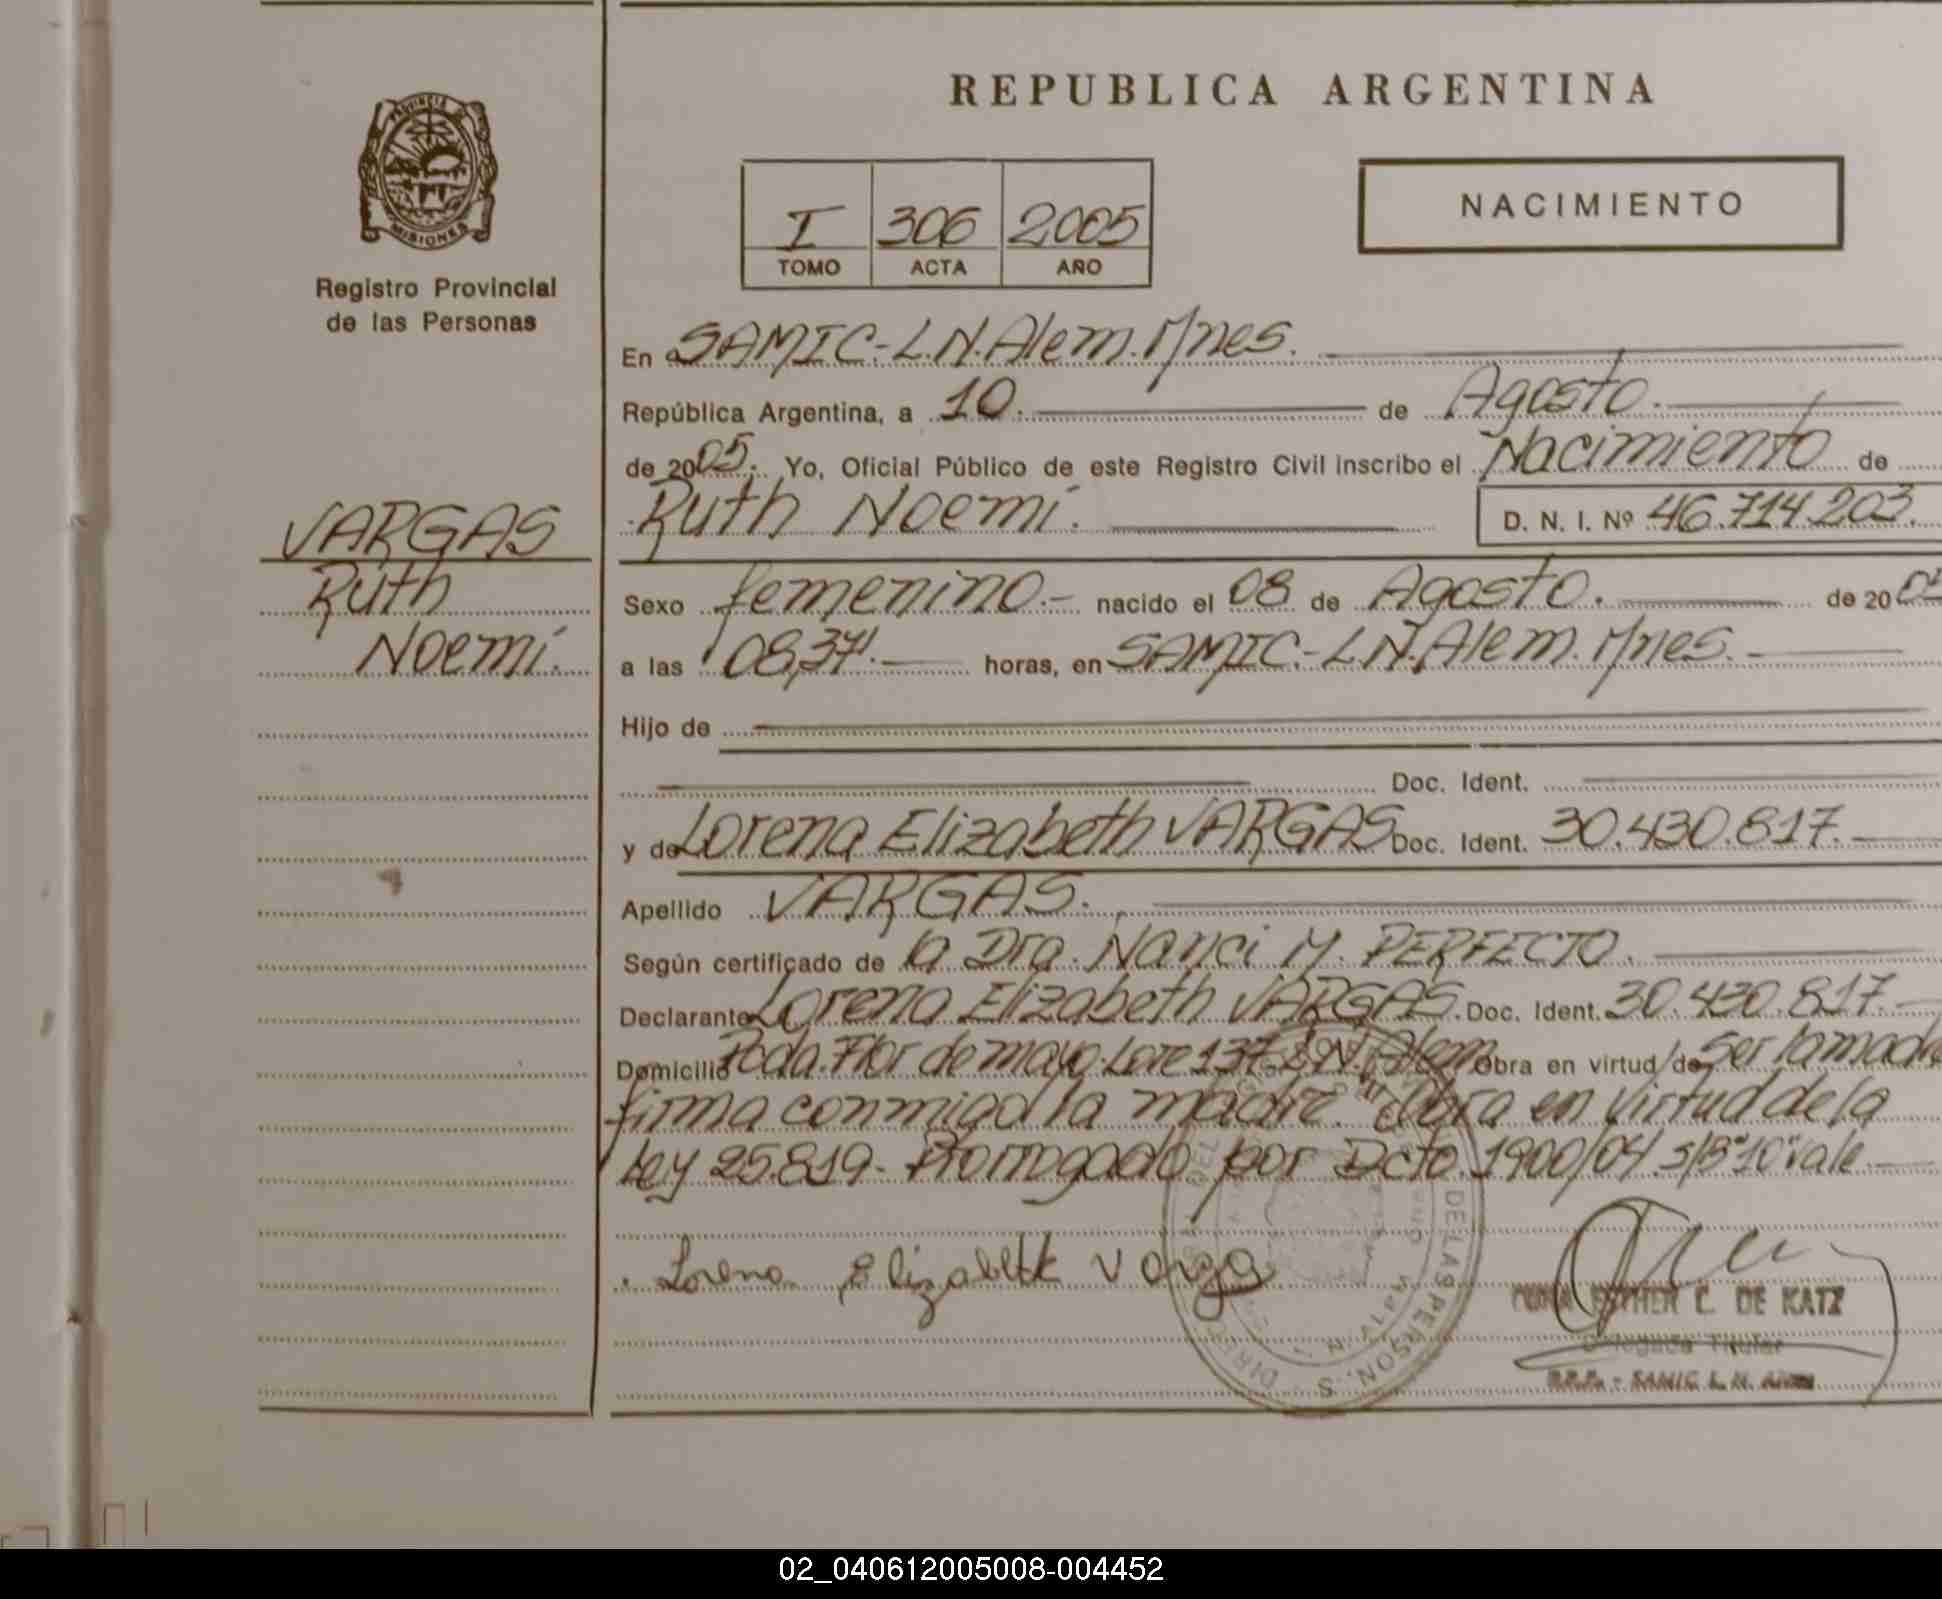 REPUBLICA ARGENTINA
PROVINCIA DE
MISIONES
Registro Provincial
de las Personas
I 306 2005
TOMO ACTA AÑO
NACIMIENTO
En SAMIC.-L.N.Alem.M/nes.
República Argentina, a 10. de Agosto.
de 2005. Yo, Oficial Público de este Registro Civil inscribo el Nacimiento de
Ruth Noemí. D. N. I. Nº 46.714.203.
VARGAS
Ruth
Noemí.
Sexo femenino.- nacido el 08 de Agosto. de 2005
a las 08,37. horas, en SAMIC.-L.N.Alem.M/nes.
Hijo de
Doc. Ident.
y de Lorena Elizabeth VARGAS Doc. Ident. 30.430.817.
Apellido VARGAS.
Según certificado de la Dra. Nanci M. PERFECTO.
Declarante Lorena Elizabeth VARGAS. Doc. Ident. 30.430.817.
Domicilio Pcda. Flor de mayo. Lote 137. L.N. Alem Obra en virtud de Ser la madre
firma conmigo la madre. Obra en virtud de la
Ley 25.819.- Prorrogado por Dcto. 1900/04 s/B"10"vale
Lorena Elizabeth Varga
ESTHER C. DE KATZ
Delegada Titular
R.P.P. - SAMIC L. N. Alem
DE LAS PERSONAS
02_040612005008-004452